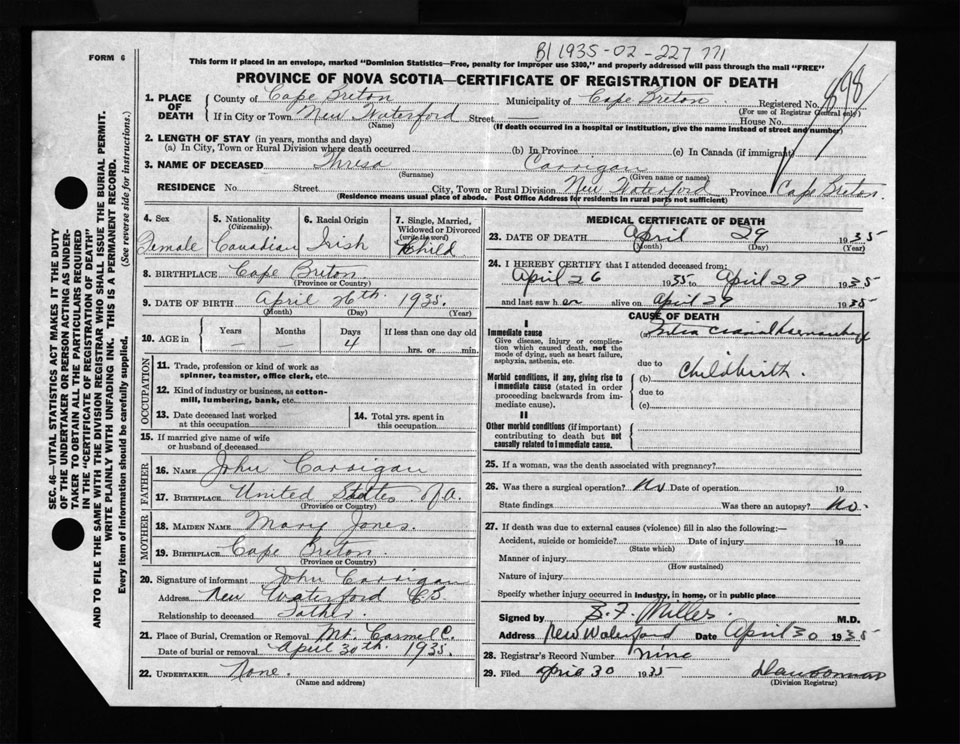 B1 1935-02-227 771
FORM 6
This form if placed in an envelope, marked "Dominion Statistics—Free, penalty for improper use $300," and properly addressed will pass through the mail "FREE"
PROVINCE OF NOVA SCOTIA—CERTIFICATE OF REGISTRATION OF DEATH
SEC. 46—VITAL STATISTICS ACT MAKES IT THE DUTY
OF THE UNDERTAKER OR PERSON ACTING AS UNDER-
TAKER TO OBTAIN ALL THE PARTICULARS REQUIRED
IN THE "CERTIFICATE OF REGISTRATION OF DEATH"
AND TO FILE THE SAME WITH THE DIVISION REGISTRAR WHO SHALL ISSUE THE BURIAL PERMIT.
WRITE PLAINLY WITH UNFADING INK. THIS IS A PERMANENT RECORD.
Every item of information should be carefully supplied. (See reverse side for instructions.)
1. PLACE OF DEATH County of Cape Breton Municipality of Cape Breton Registered No. 898
(For use of Registrar General only)
If in City or Town New Waterford Street — House No.
(Name) (If death occurred in a hospital or institution, give the name instead of street and number)
2. LENGTH OF STAY (in years, months and days)
(a) In City, Town or Rural Division where death occurred (b) In Province (c) In Canada (if immigrant)
3. NAME OF DECEASED Thresa Corrigan
(Surname) (Given name or names)
RESIDENCE No. Street City, Town or Rural Division New Waterford Province Cape Breton
(Residence means usual place of abode. Post Office Address for residents in rural parts not sufficient)
4. Sex 5. Nationality (Citizenship) 6. Racial Origin 7. Single, Married, Widowed or Divorced (write the word)
Female Canadian Irish Child
8. BIRTHPLACE Cape Briton
(Province or Country)
9. DATE OF BIRTH April 26th. 1935.
(Month) (Day) (Year)
10. AGE in Years Months Days If less than one day old
— — 4 hrs. or min.
OCCUPATION
11. Trade, profession or kind of work as
spinner, teamster, office clerk, etc.
12. Kind of industry or business, as cotton-
mill, lumbering, bank, etc.
13. Date deceased last worked
at this occupation
14. Total yrs. spent in
this occupation
15. If married give name of wife
or husband of deceased
FATHER
16. NAME John Corrigan
17. BIRTHPLACE United States of A.
(Province or Country)
MOTHER
18. MAIDEN NAME Mary Jones.
19. BIRTHPLACE Cape Breton.
(Province or Country)
20. Signature of informant John Corrigan
Address New Waterford C.B.
Relationship to deceased Father
21. Place of Burial, Cremation or Removal Mt. Carmel C.
Date of burial or removal April 30th. 1935.
22. UNDERTAKER None.
(Name and address)
MEDICAL CERTIFICATE OF DEATH
23. DATE OF DEATH April 29 1935
(Month) (Day) (Year)
24. I HEREBY CERTIFY that I attended deceased from:
April 26 1935 to April 29 1935
and last saw her alive on April 29 1935
CAUSE OF DEATH
I
Immediate cause
Give disease, injury or complica-
tion which caused death, not the
mode of dying, such as heart failure,
asphyxia, asthenia, etc.
Intra cranial
due to
Morbid conditions, if any, giving rise to
immediate cause (stated in order
proceeding backwards from im-
mediate cause).
(b) Childbirth.
due to
(c)
II
Other morbid conditions (if important)
contributing to death but not
causally related to immediate cause.
25. If a woman, was the death associated with pregnancy?
26. Was there a surgical operation? No Date of operation 19
State findings Was there an autopsy? No.
27. If death was due to external causes (violence) fill in also the following:—
Accident, suicide or homicide? Date of injury 19
(State which)
Manner of injury
(How sustained)
Nature of injury
Specify whether injury occurred in industry, in home, or in public place
Signed by S. F. Miller. M.D.
Address New Waterford Date April 30 1935
28. Registrar's Record Number nine
29. Filed April 30 1935
(Division Registrar)